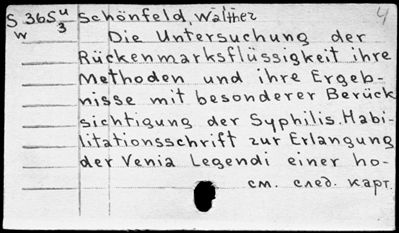 S 365 u/3 Schönfeld, Walther 4
w Die Untersuchung der
Rückenmarksflüssigkeit ihre
Methoden und ihre Ergeb-
nisse mit besonderer Berück
sichtigung der Syphilis. Habi-
litationsschrift zur Erlangung
der Venia Legendi einer ho-
см. след. карт.